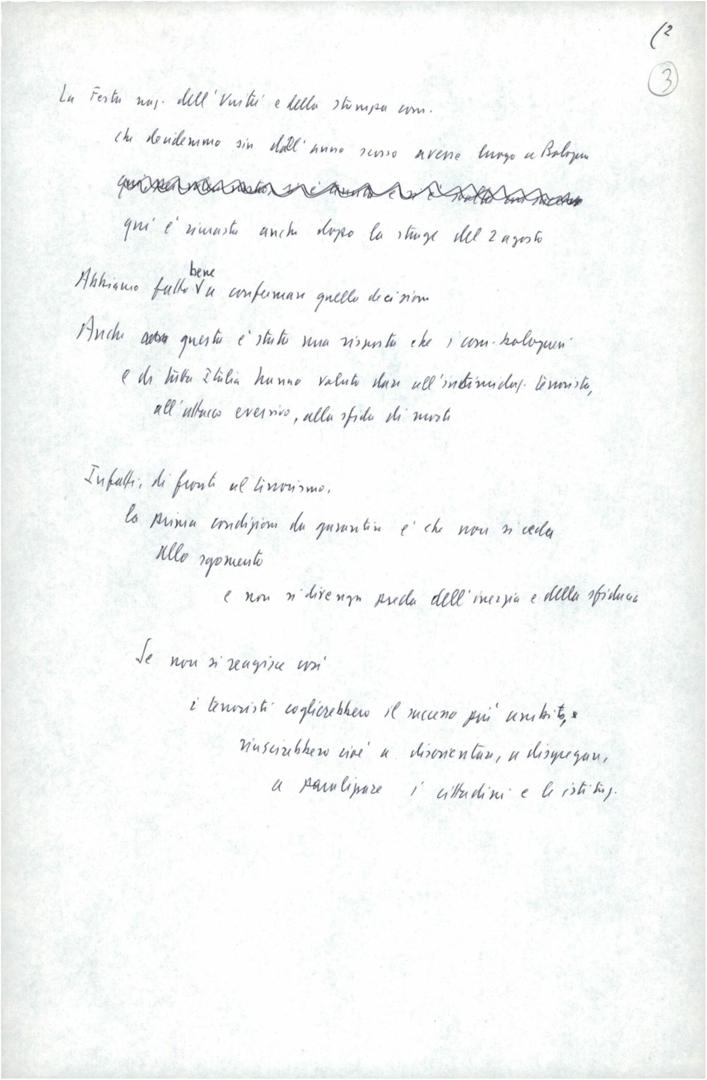 (2
3
La Festa naz. dell'Unità e della stampa com.
che decidemmo sin dall'anno scorso avesse luogo a Bologna
qui è rimasta anche dopo la strage del 2 agosto
bene
Abbiamo fatto V a confermare quella decisione
Anche questa è stata una risposta che i com. bolognesi
e di tutta Italia hanno voluto dare all'intimidaz. terrorista,
all'attacco eversivo, alla sfida di morte
Infatti, di fronte al terrorismo,
la prima condizione da garantire è che non si ceda
allo sgomento
e non si divenga preda dell'inerzia e della sfiducia
Se non si reagisce così
i terroristi coglierebbero il successo più ambito,
riuscirebbero cioè a disorientare, a disgregare,
a paralizzare i cittadini e le istituz.